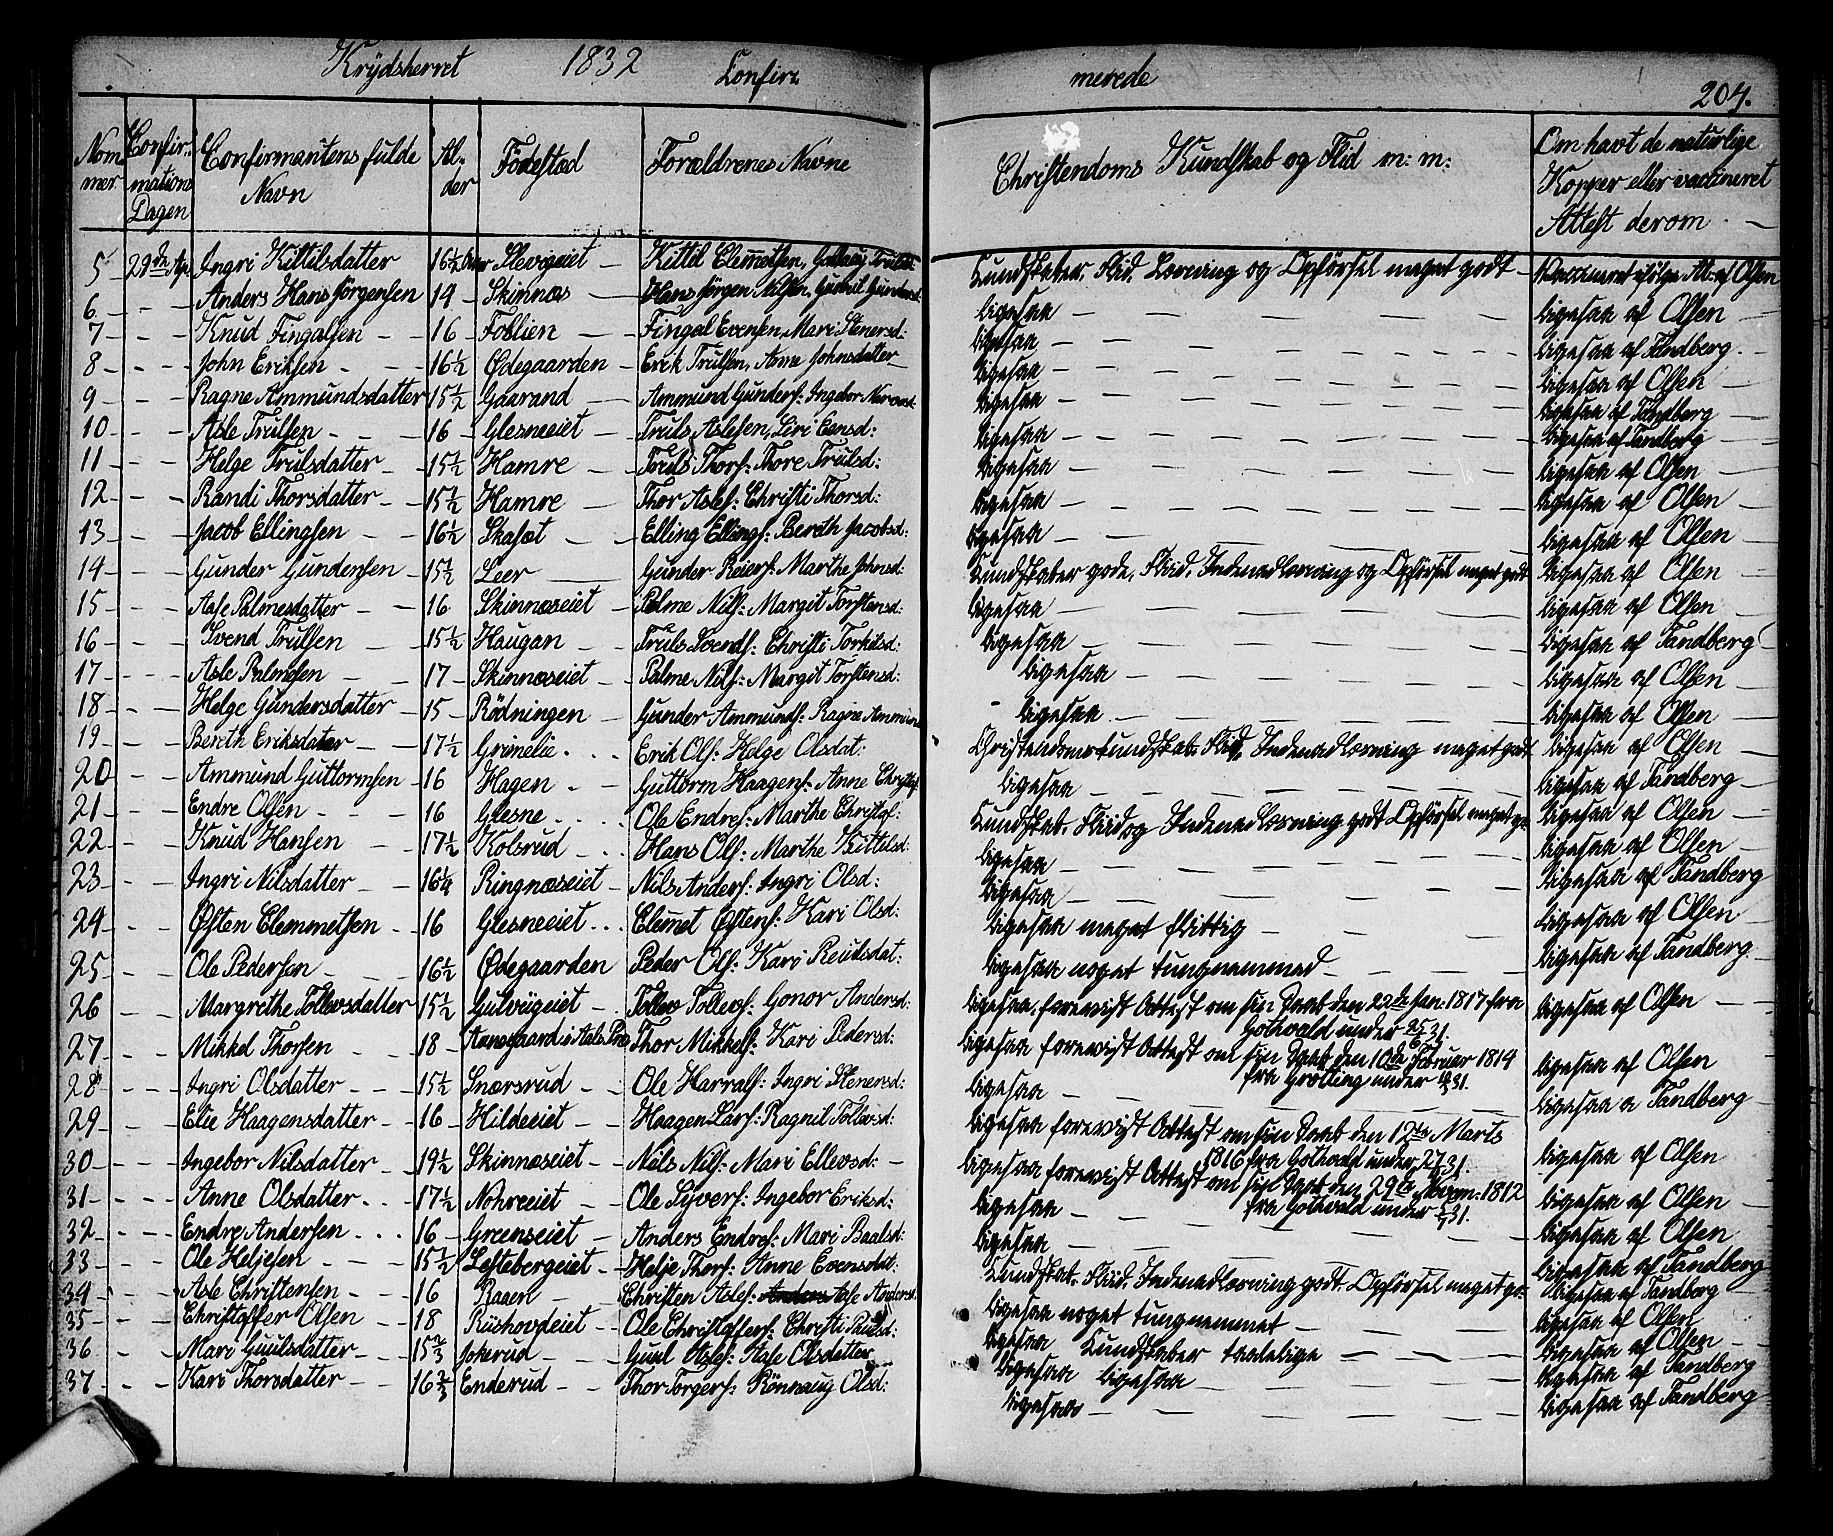 Krÿdsherret 1832 Confir= merede 204.
Nom mer Confir= mations Dagen Confirmantens fulde Navn Al= der Födestæd Forældrenes Navne Christendoms Kundskab og Flid m: m: Om havt de naturlige Kopper eller vaccineret Attest derom
5 29de Ap. Ingri Kittilsdatter 16½ Aar Slevigeiet Kittil Clemetsen, Kundskaber, Flid, Læsning og Opförsel meget godt Vaccineret ifölge At: af Olsen
6 Anders Hans Jörgensen 19 Skinnæs Hans Jörgen Nilsen, Gunnil Gundersd. ligesaa ligesaa af Olsen
7 Knud Fingalsen 16 Foslien Fingal Evensen, Mari Stenersd. ligesaa ligesaa af Tandberg
8 John Eriksen 16½ Ødegaarden Erik Trulsen, Anne Johnsdatter ligesaa ligesaa af Olsen
9 Ragne Ammundsdatter 15½ Gaarand Ammund Gunders: Ingebor ligesaa ligesaa af Tandberg
10 Asle Trulsen 16 Glesneeiet Truls Aslesen, Siri Evensd: ligesaa ligesaa af Tandberg
11 Helge Trulsdatter 15½ Hamre Truls Thors: Thore Trulsd: ligesaa ligesaa af Olsen
12 Randi Thorsdatter 15½ Hamre Thor Asles: Christi Thorsd: ligesaa ligesaa af Olsen
13 Jacob Ellingsen 16½ Skasæt Elling Ellings: Bereth Jacobsd: ligesaa ligesaa af Olsen
14 Gunder Gundersen 15½ Leer Gunder Reiers: Marthe Johnsd: Kundskaber gode, Flid, Indenadlæsning og Opförsel meget godt ligesaa af Olsen
15 Aase Palmesdatter 16 Skinnæseiet Palme Nils: Margit Torstensd: ligesaa ligesaa af Olsen
16 Svend Trulsen 15½ Haugan Truls Svends: Christi Torkilsd: ligesaa ligesaa af Tandberg
17 Asle Palmesen 17 Skinnæseiet Palme Nils: Margit Torstensd: ligesaa ligesaa af Olsen
18 Helge Gundersdatter 15 Rödningen Gunder Ammunds: Ragne Ammunds ligesaa ligesaa af Olsen
19 Bereth Eriksdater 17½ Grimelie Erik Ols: Helge Olsdat: Christendomskundskab, Flid, Indenadlæsning meget godt ligesaa af Olsen
20 Ammund Guttormsen 16 Hagen Guttorm Haagens: Anne Christofs ligesaa ligesaa af Tandberg
21 Endre Olsen 16 Glesne Ole Endres: Marthe Christofs: Kundskab, Flid og Indenadlæsning godt Opförsel meget go ligesaa af Olsen
22 Knud Hansen 17½ Kolsrud Hans Ols: Marthe Kittelsd: ligesaa ligesaa af Olsen
23 Ingri Nilsdatter 16¼ Ringnæseiet Nils Anders: Ingri Olsd: ligesaa ligesaa af Tandberg
24 Østen Clemmetsen 16 Glesneeiet Clemet Østens: Kari Olsd: ligesaa meget flittig ligesaa af Olsen
25 Ole Pedersen 16½ Ødegaarden Peder Ols: Kari Reulsdat: ligesaa noget tungnemmed ligesaa af Tandberg
26 Margrethe Tollevsdatter 15½ Gulviigeiet Tollev Tollevs: Gonor Andersd: ligesaa, foreviist Attest om sin Daab den 22de Jan: 1817 fra Gothvald under ligesaa af Olsen
27 Mikkel Thorsen 18 Aanegaard i Aals Præs Thor Mikkels: Kari Pedersd: ligesaa foreviist Attest om sin Daab den 10de Februar 1814 fra Grötting under ligesaa af Olsen
28 Ingri Olsdatter 15½ Snærsrud Ole Harrals: Ingri Stenersd: ligesaa ligesaa a Tandberg
29 Elie Haagensdatter 16 Hildeeiet Haagen Lars: Ragnil Tollevsd: ligesaa foreviist Attest om sin Daab den 12te Marts 1816 fra Gothvald under ligesaa af Olsen
30 Ingebor Nilsdatter 19½ Skinnæseiet Nils Nils: Mari Ellevsd: ligesaa foreviist Attest om sin Daab den 29de Novem: 1812 fra Gothvald under ligesaa af Olsen
31 Anne Olsdatter 17½ Nohreeiet Ole Syvers: Ingebor Eriksd: ligesaa ligesaa af Olsen
32 Endre Andersen 16 Greenseiet Anders Endres: Mari Paalsd: ligesaa ligesaa af Tandberg
33 Ole Heljesen 15½ Lestebergeiet Helje Thors: Anne Evensdat: Kundskab, Flid, Indenadlæsning godt, Opförsel meget go: ligesaa af Tandberg
34 Asle Christensen 16 Raaen Christen Asles: Aase Andersd: ligesaa noget tungnemmet ligesaa af Olsen
35 Christoffer Olsen 18 Riishovdeiet Ole Christoffers: Christi Paulsd: ligesaa Kundskaber taalelige ligesaa af Olsen
36 Mari Guulsdatter 15⅔ Jokerud Guul Asles: Aase Olsdatter ligesaa ligesaa ligesaa af Tandberg
37 Kari Thorsdatter 16⅔ Enderud Thor Torgers: Rönnaug Olsd: ligesaa ligesaa af Tandberg